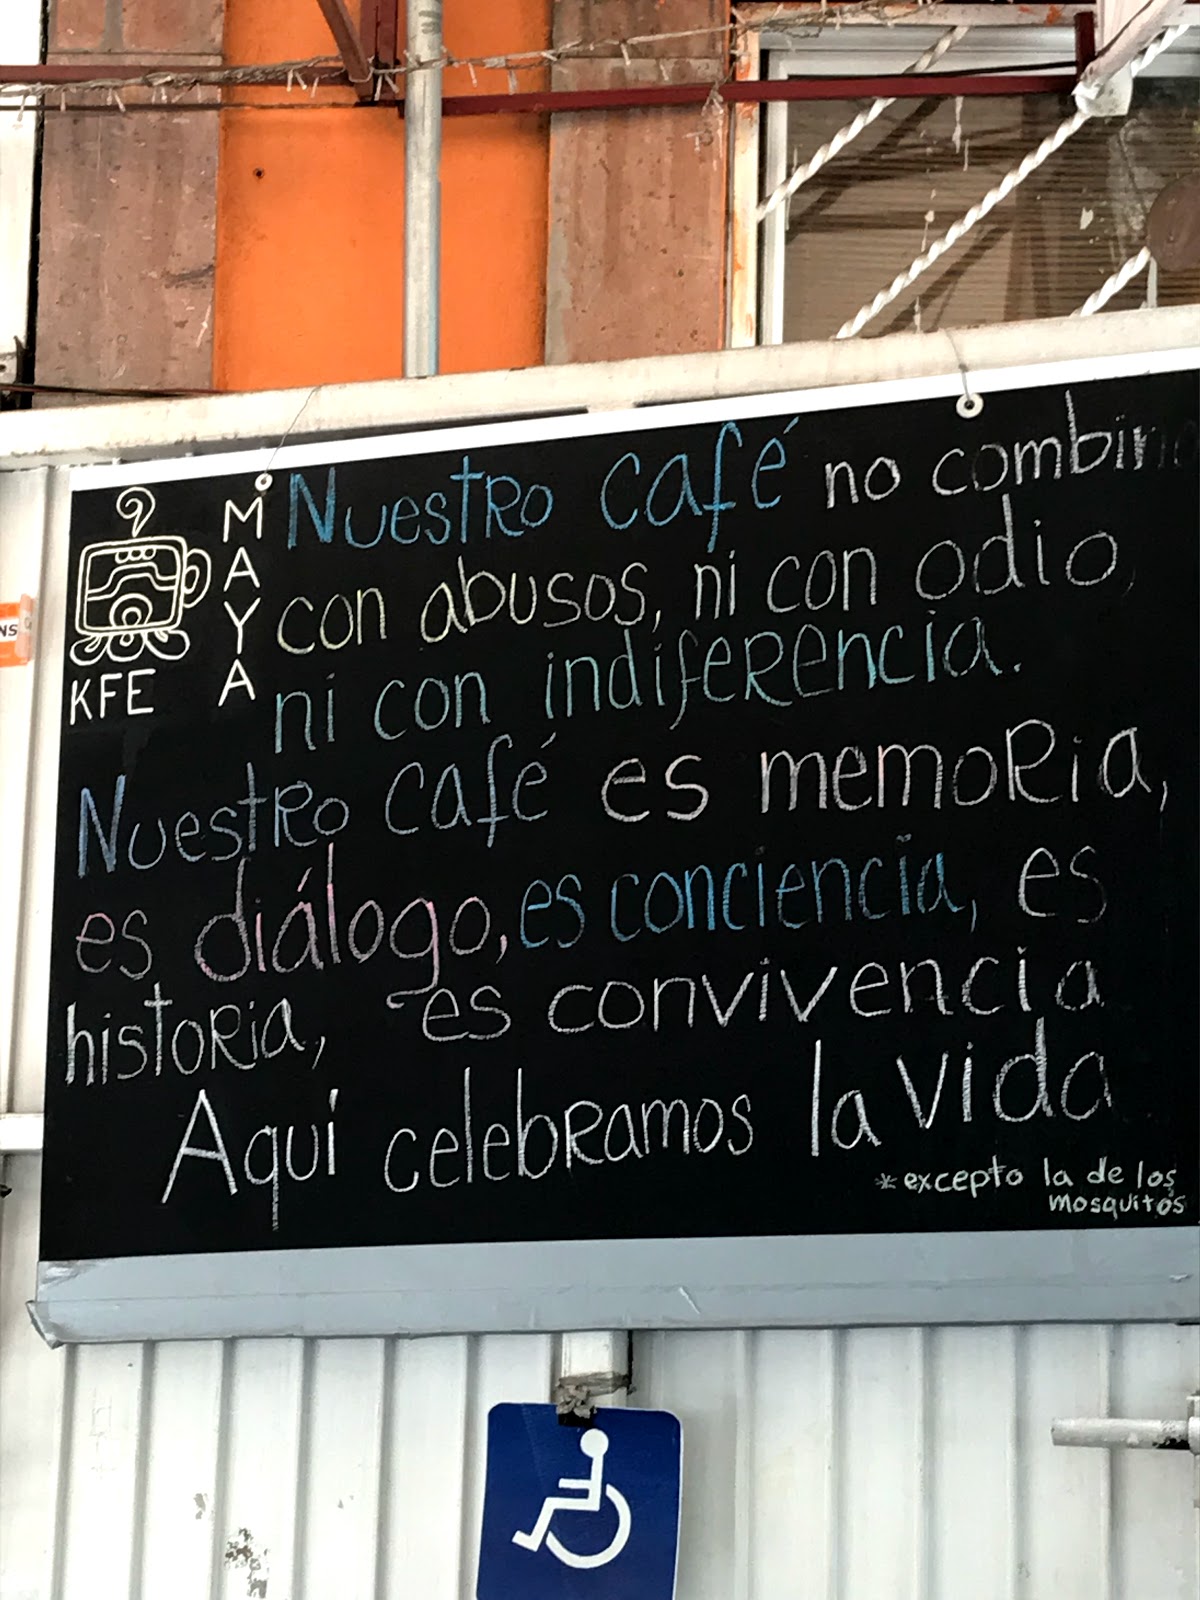 MAYA
KFE
Nuestro café no combin
con abusos, ni con odio,
ni con indiferencia.
Nuestro café es memoria,
es diálogo, es conciencia, es
historia, es convivencia
Aquí celebramos la vida
*excepto la de los
mosquitos
NS